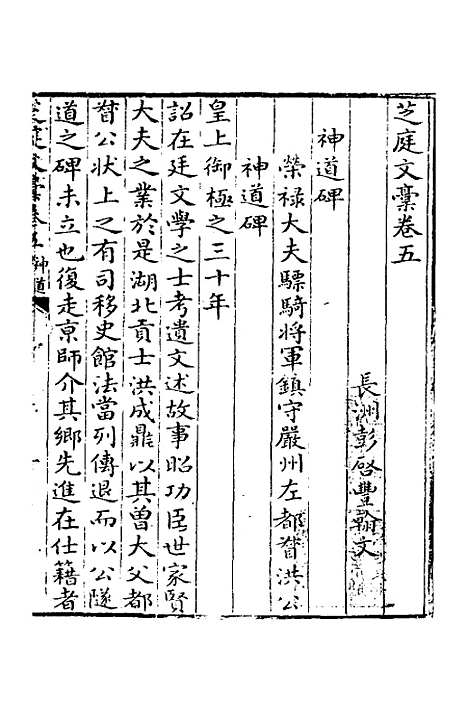 芝庭文稾卷五
長洲彭啓豐翰文
神道碑
榮禄大夫驃騎將軍鎮守嚴州左都督洪公
神道碑
皇上御極之三十年
詔在廷文學之士考遺文述故事昭功臣世家賢
大夫之業於是湖北貢士洪成鼎以其曾大父都
督公状上之有司移史館法當列傳退而以公隧
道之碑未立也復走京師介其鄉先進在仕籍者
芝庭文稾卷五 神道